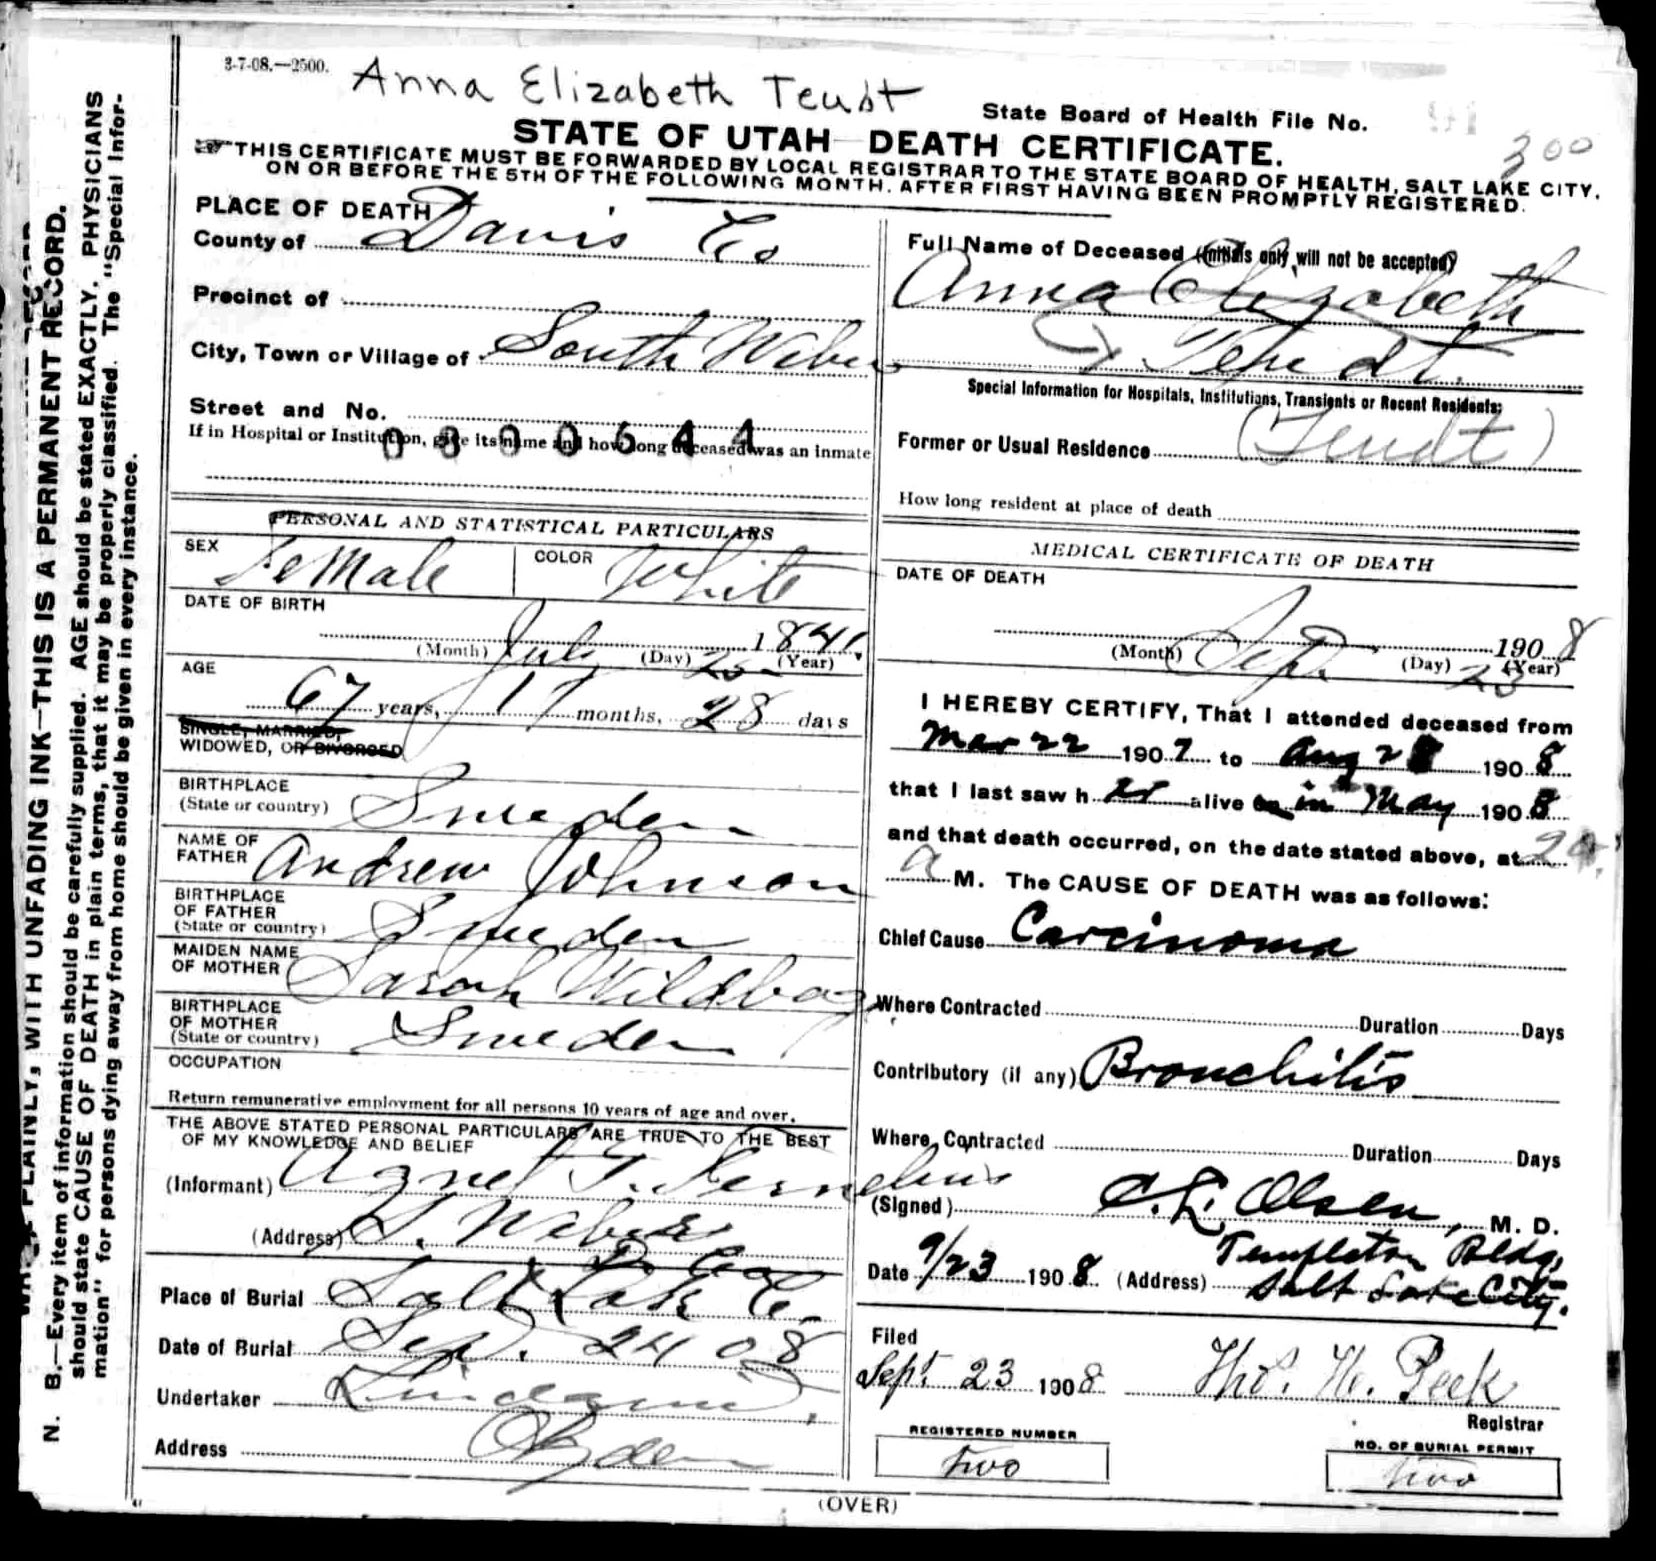 3-7-08.—2500.
Anna Elizabeth Teudt
State Board of Health File No.
300
STATE OF UTAH—DEATH CERTIFICATE.
THIS CERTIFICATE MUST BE FORWARDED BY LOCAL REGISTRAR TO THE STATE BOARD OF HEALTH, SALT LAKE CITY,
ON OR BEFORE THE 5TH OF THE FOLLOWING MONTH, AFTER FIRST HAVING BEEN PROMPTLY REGISTERED.
PLACE OF DEATH
County of Davis Co
Precinct of
City, Town or Village of South Weber
Street and No.
If in Hospital or Institution, give its name and how long deceased was an inmate
0300644
PERSONAL AND STATISTICAL PARTICULARS
SEX Female COLOR White
DATE OF BIRTH
(Month) July (Day) 1841. (Year)
AGE
67 years, months, 28 days
SINGLE, MARRIED,
WIDOWED, OR DIVORCED
BIRTHPLACE
(State or country) Sweden
NAME OF
FATHER Andrew Johnson
BIRTHPLACE
OF FATHER
(State or country) Sweden
MAIDEN NAME
OF MOTHER Sarah
BIRTHPLACE
OF MOTHER
(State or country) Sweden
OCCUPATION
Return remunerative employment for all persons 10 years of age and over.
THE ABOVE STATED PERSONAL PARTICULARS ARE TRUE TO THE BEST
OF MY KNOWLEDGE AND BELIEF
(Informant) Agnes T.
(Address) S. Weber
Place of Burial Salt Lake C.
Date of Burial Sep. 24 08
Undertaker
Address Ogden
Full Name of Deceased (Initials only will not be accepted)
Anna Elizabeth
Teudt.
Special Information for Hospitals, Institutions, Transients or Recent Residents:
Former or Usual Residence (Teudt)
How long resident at place of death
MEDICAL CERTIFICATE OF DEATH
DATE OF DEATH
(Month) Sep. (Day) 23 1908 (Year)
I HEREBY CERTIFY, That I attended deceased from
Mar 22 1907 to Aug 1908
that I last saw her alive in May 1908
and that death occurred, on the date stated above, at
a M. The CAUSE OF DEATH was as follows:
Chief Cause Carcinoma
Where Contracted Duration Days
Contributory (if any) Bronchitis
Where Contracted Duration Days
(Signed) C. L. Olsen, M. D.
Date 9/23 1908 (Address) Templeton Bldg,
Salt Lake City.
Filed
Sept 23 1908 Thos. W. Peek
Registrar
REGISTERED NUMBER
two
NO. OF BURIAL PERMIT
two
(OVER)
N. B.—Every item of information should be carefully supplied. AGE should be stated EXACTLY. PHYSICIANS
should state CAUSE OF DEATH in plain terms, that it may be properly classified. The "Special Infor-
mation" for persons dying away from home should be given in every instance.
PLAINLY, WITH UNFADING INK—THIS IS A PERMANENT RECORD.